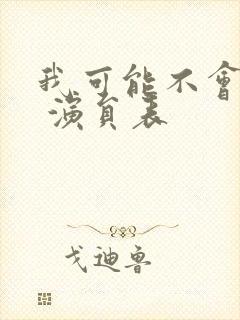 我可能不會
演員表
戈迪魯